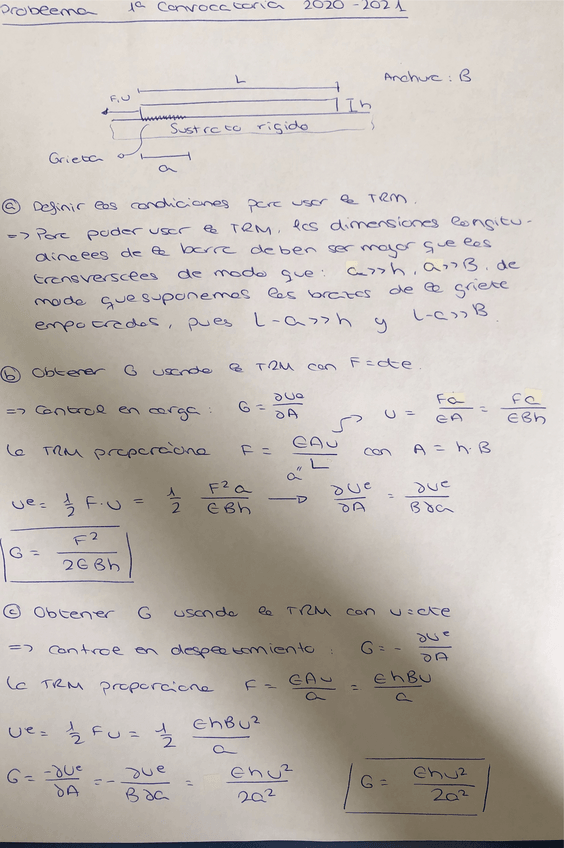 Problema 1ª Convocatoria 2020-2021
L
Anchura: B
F,u
h
Sustrato rígido
Grieta
a
ⓐ Definir las condiciones para usar la TRM.
=> Para poder usar la TRM, las dimensiones longitu-
dinales de la barra deben ser mayor que las
transversales de modo que: a>>h, a>>B, de
modo que suponemos los brazos de la grieta
empotrados, pues L-a>>h y L-a>>B
ⓑ Obtener G usando la TRM con F=cte.
=> Control en carga: G = ∂Ue/∂A → u = Fa/EA = Fa/EBh
La TRM proporciona F = EAu/L con A = h·B
a"
Ue = 1/2 F·u = 1/2 F²a/EBh → ∂Ue/∂A = ∂Ue/B∂a
G = F²/2EBh
ⓒ Obtener G usando la TRM con u=cte
=> Control en desplazamiento: G = - ∂Ue/∂A
La TRM proporciona F = EAu/a = EhBu/a
Ue = 1/2 Fu = 1/2 EhBu²/a
G = -∂Ue/∂A = - ∂Ue/B∂a = Ehu²/2a² G = Ehu²/2a²